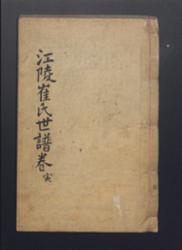 江陵崔氏世譜卷